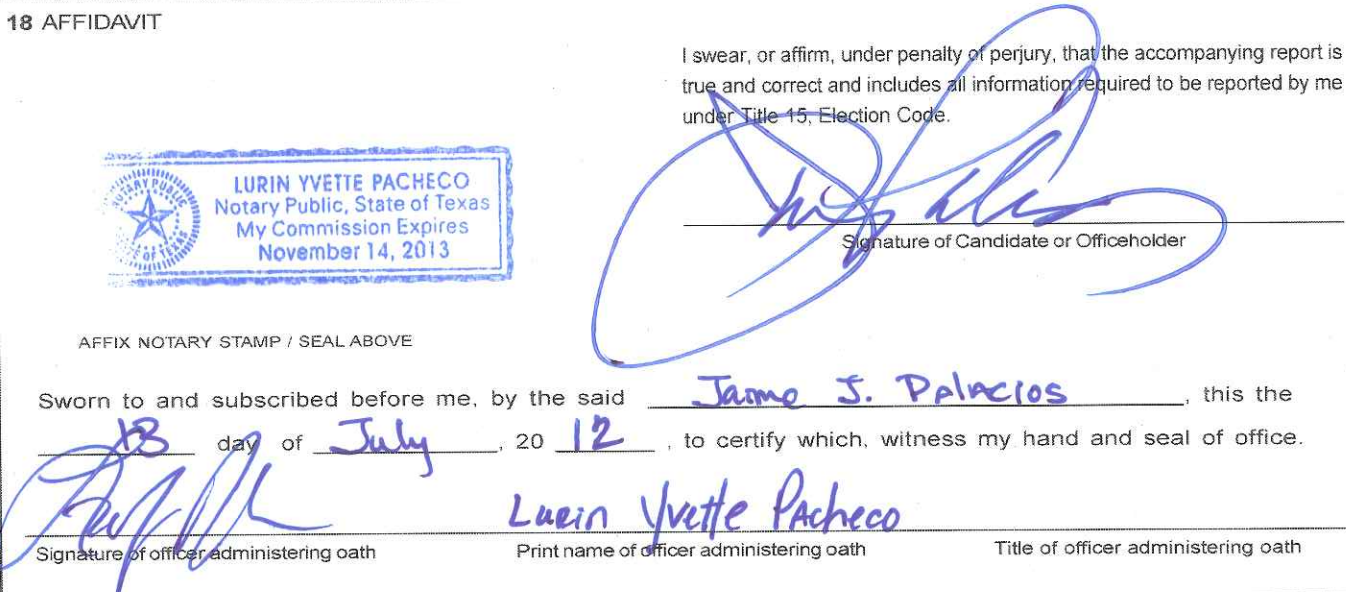 18 AFFIDAVIT
I swear, or affirm, under penalty of perjury, that the accompanying report is
true and correct and includes all information required to be reported by me
under Title 15, Election Code.
LURIN YVETTE PACHECO
Notary Public, State of Texas
My Commission Expires
November 14, 2013
Signature of Candidate or Officeholder
AFFIX NOTARY STAMP / SEAL ABOVE
Sworn to and subscribed before me, by the said Jaime J. Palacios, this the
13 day of July, 20 12, to certify which, witness my hand and seal of office.
Lurin Yvette Pacheco
Signature of officer administering oath Print name of officer administering oath Title of officer administering oath